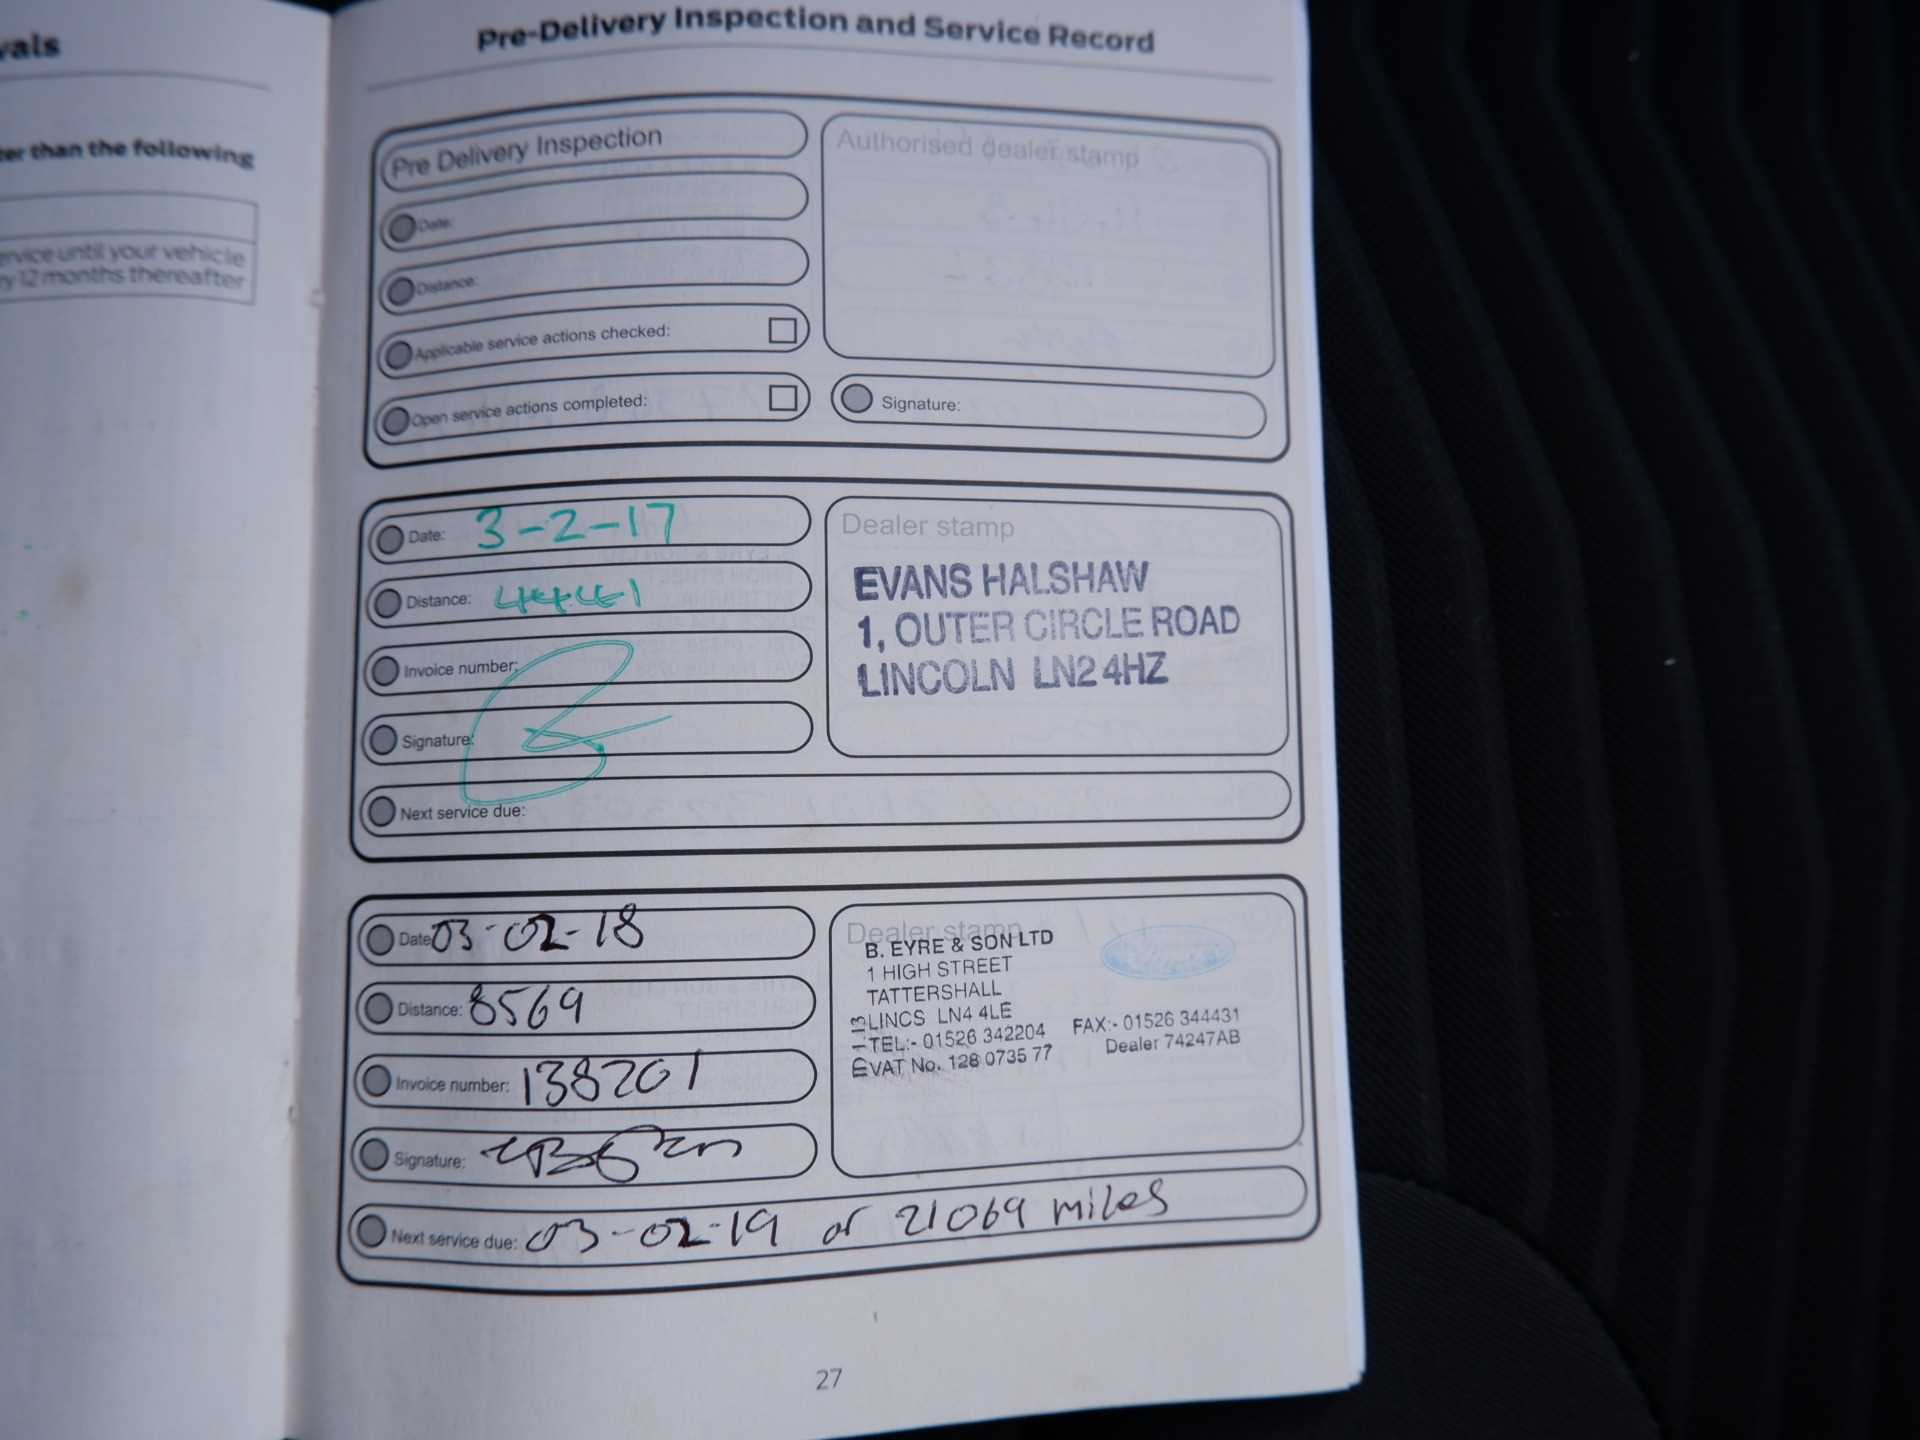 vals
ter than the following
ervice until your vehicle
ry 12 months thereafter
Pre-Delivery Inspection and Service Record
Pre Delivery Inspection
Date:
Distance:
Applicable service actions checked:
Open service actions completed:
Authorised dealer stamp
Signature:
Date: 3-2-17
Distance: 4441
Invoice number:
Signature:
Next service due:
Dealer stamp
EVANS HALSHAW
1, OUTER CIRCLE ROAD
LINCOLN LN2 4HZ
Date: 03-02-18
Distance: 8569
Invoice number: 138201
Signature:
Next service due: 03-02-19 or 21069 miles
Dealer stamp
B. EYRE & SON LTD
1 HIGH STREET
TATTERSHALL
LINCS LN4 4LE
TEL:- 01526 342204 FAX:- 01526 344431
VAT No. 128 0735 77 Dealer 74247AB
27